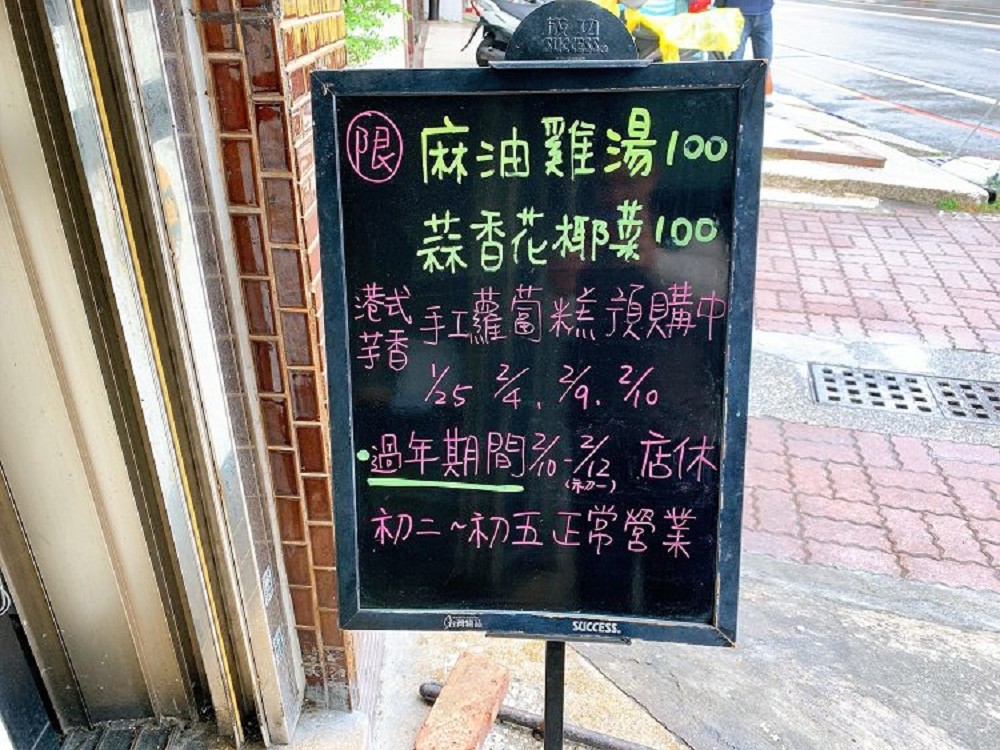 成功
SUCCESS®
限 麻油雞湯100
蒜香花椰菜100
港式芋香 手工蘿蔔糕預購中
1/25 2/4、2/9、2/10
過年期間2/10-2/12 店休
(初一)
初二~初五正常營業
台灣精品 SUCCESS®